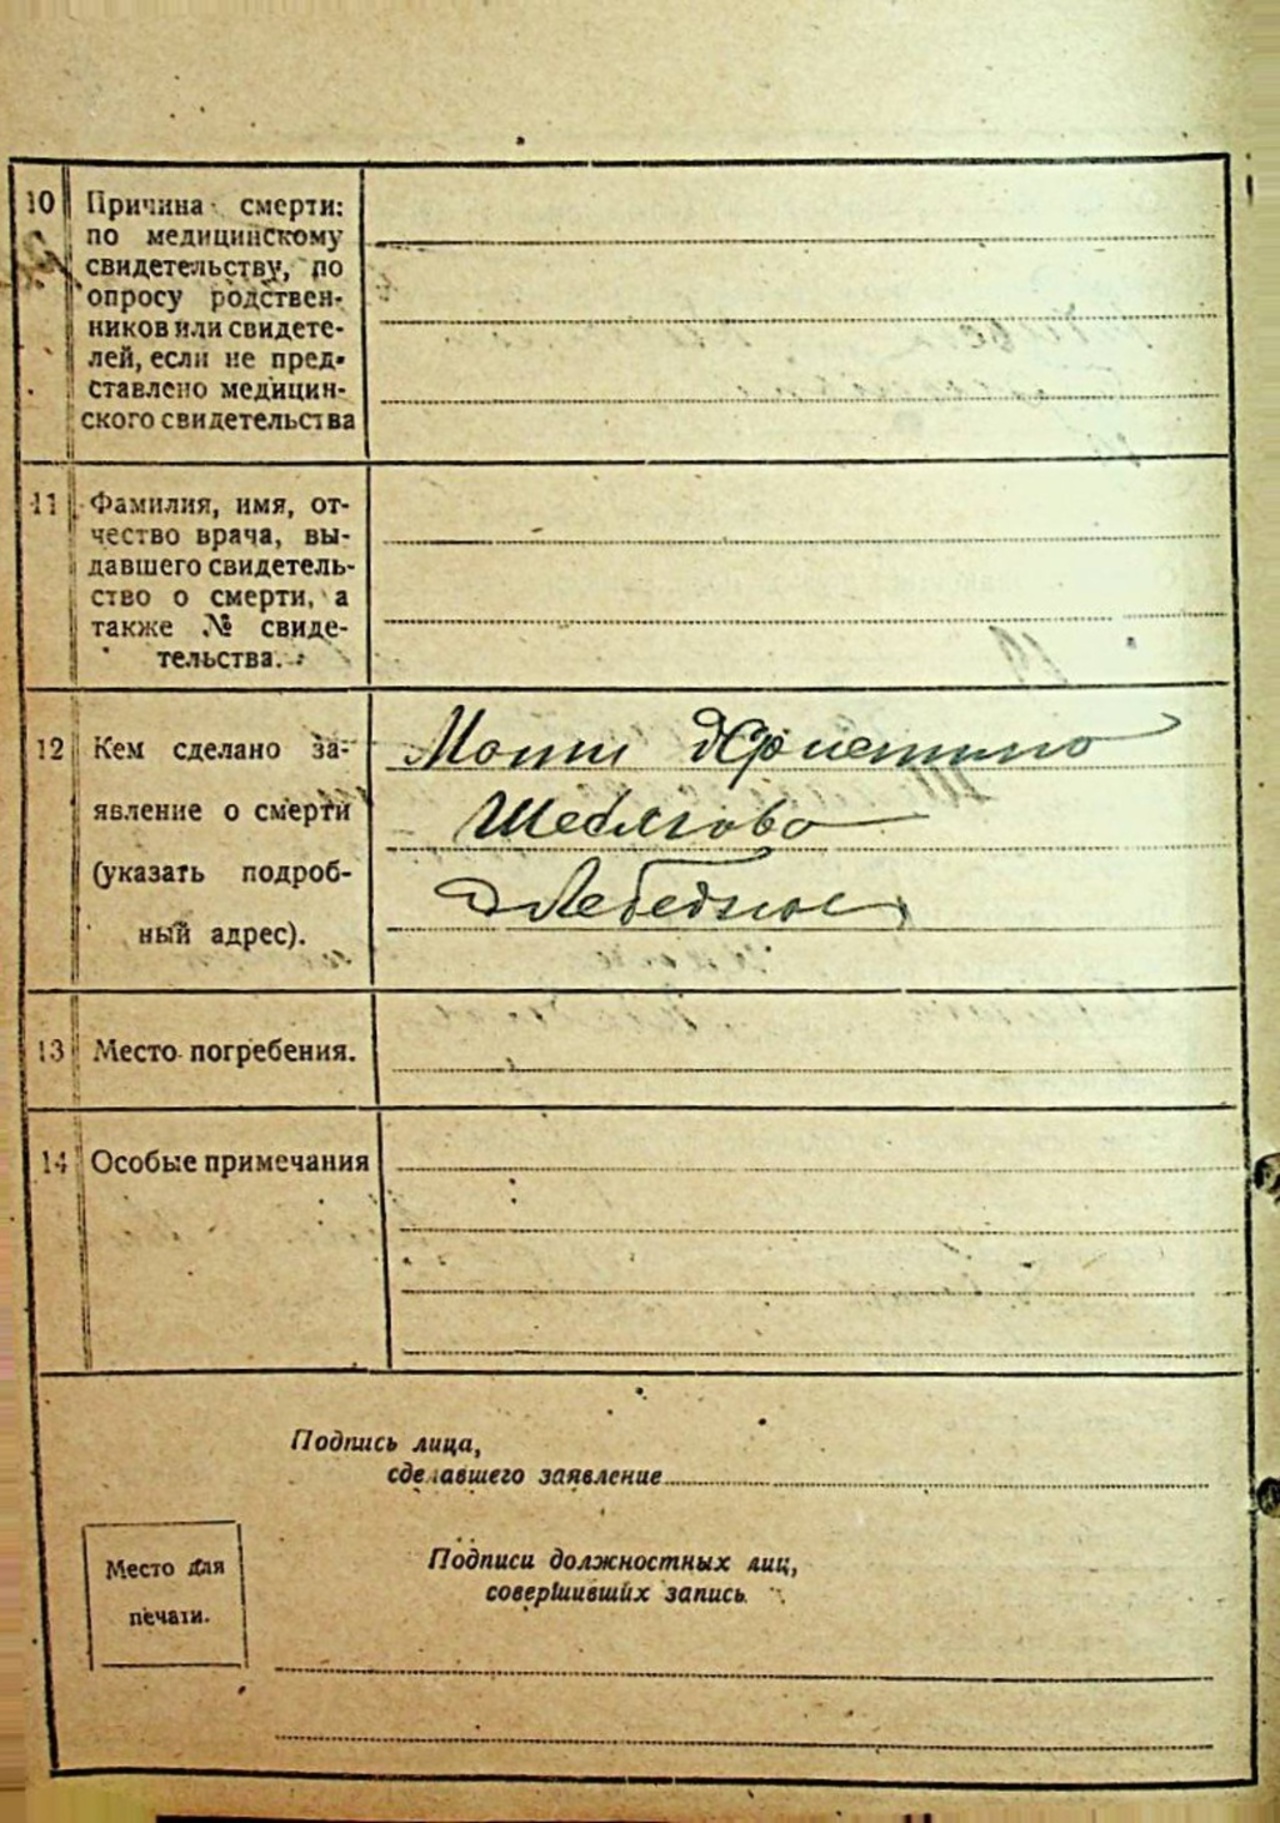 10 Причина смерти:
по медицинскому
свидетельству, по
опросу родствен-
ников или свидете-
лей, если не пред-
ставлено медицин-
ского свидетельства
11 Фамилия, имя, от-
чество врача, вы-
давшего свидетель-
ство о смерти, а
также № свиде-
тельства.
12 Кем сделано за-
явление о смерти
(указать подроб-
ный адрес).
13 Место погребения.
14 Особые примечания
Подпись лица,
сделавшего заявление
Место для
печати.
Подписи должностных лиц,
совершивших запись.